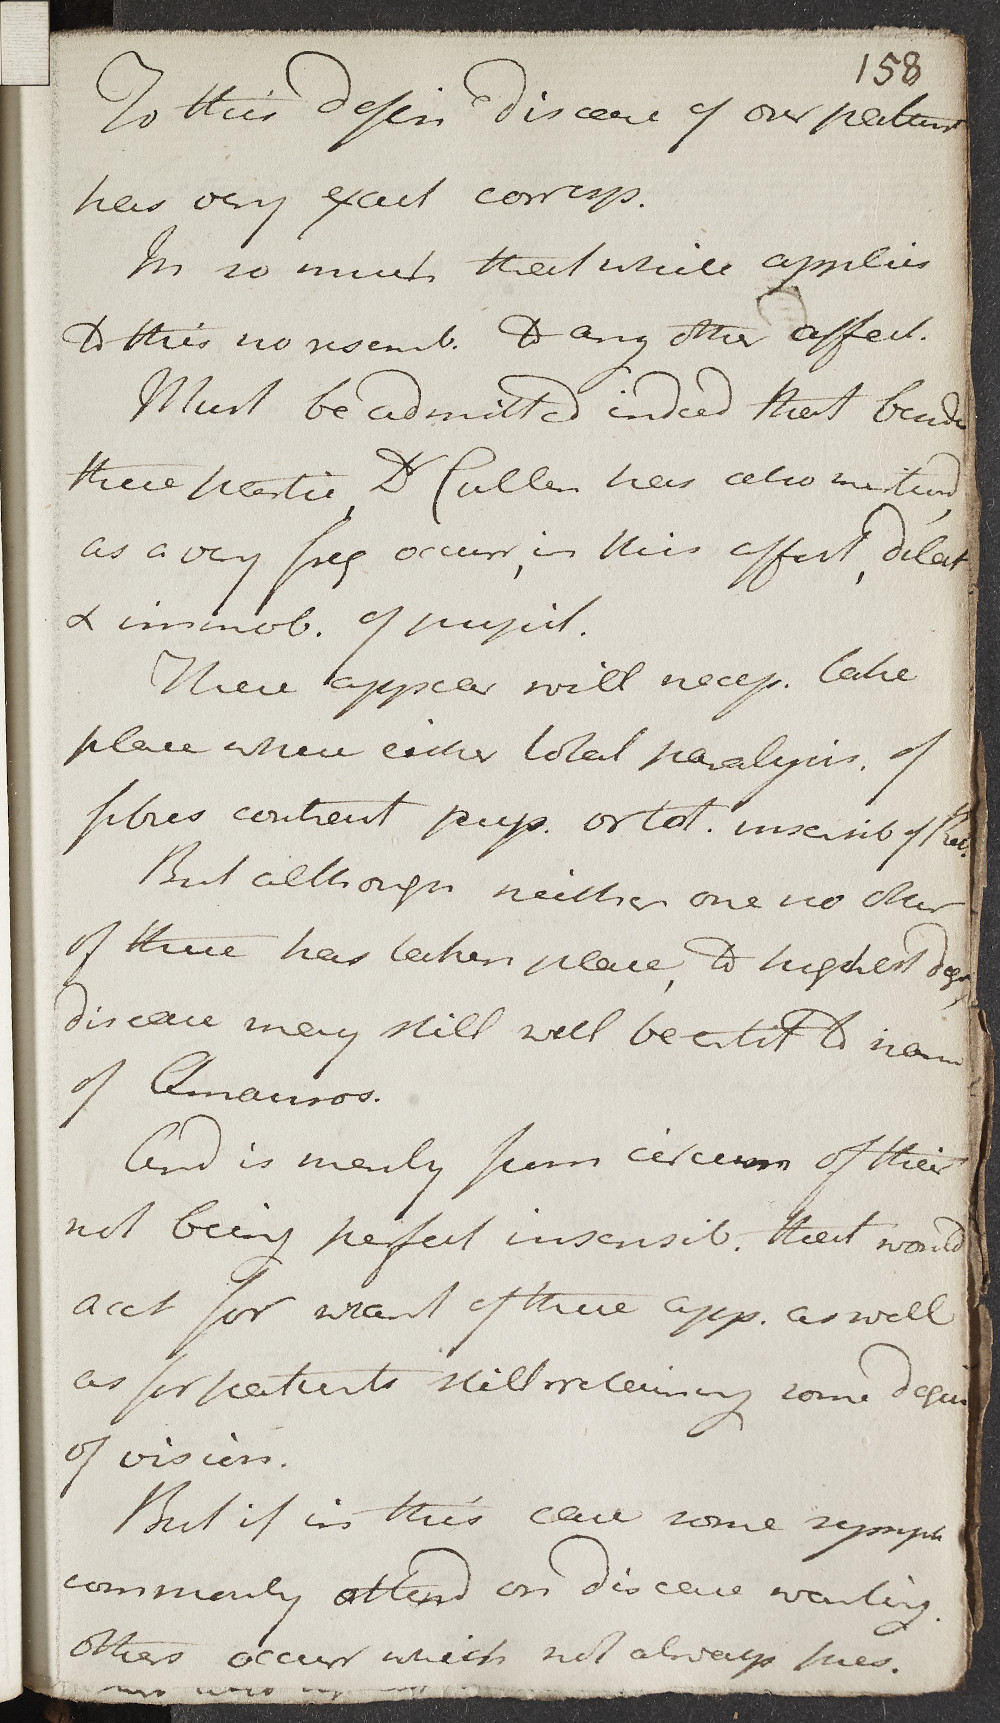 158
To this defin disease of our patient
has very exact corresp.
In so much that while applies
to this no resemb. to any other affect.
Must be admitted indeed that besides
these partic, Dr Cullen has also mentiond,
as a very freq occurr, in this affect, dilat
& immob. of pupil.
These appear will necess. take
place where either total paralysis. of
fibres contract pup. or tot. insensib of Ret.
But although neither one no other
of these has taken place, to highest degr,
disease may still well be entit to name
of Amauros.
And is merely from circum of their
not being perfect insensib. that would
acct for want of these app. as well
as for patients still retaining some degree
of vision.
But if in this case some symph
commonly attend on disease wanting.
others occur which not always pres.